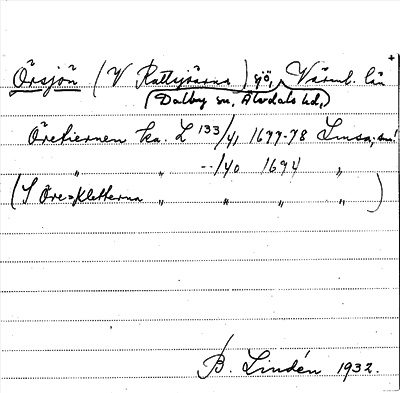 Örsjön (V Rattsjöarna) sjö, Värml. län +
(Dalby sn, Älvdals hd,)
Öretiernen ka. L 133/41 1677-78 Lmsa,
" " --/40 1694 "
(S Öre=Kletterna " " " ")
B. Lindén 1932.